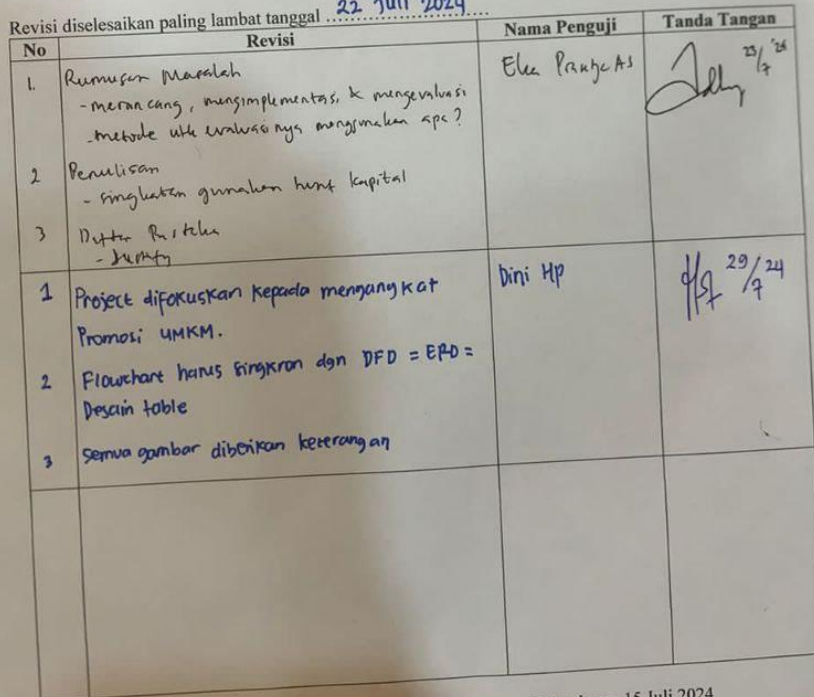 Revisi diselesaikan paling lambat tanggal 22 Juli 2024
No Revisi Nama Penguji Tanda Tangan
1. Rumusan Masalah Eka
- merancang, mengimplementas, & mengevaluasi
- metode utk evaluasi nya menggunakan apa?
2 Penulisan
- singkatan gunakan huruf kapital
3 Daftar Pustaka
- Justify
1 Project difokuskan kepada mengangkat Dini HP 29/7 24
Promosi UMKM.
2 Flowchart harus singkron dgn DFD = ERD =
Desain table
3 Semua gambar diberikan keterangan
15 Juli 2024